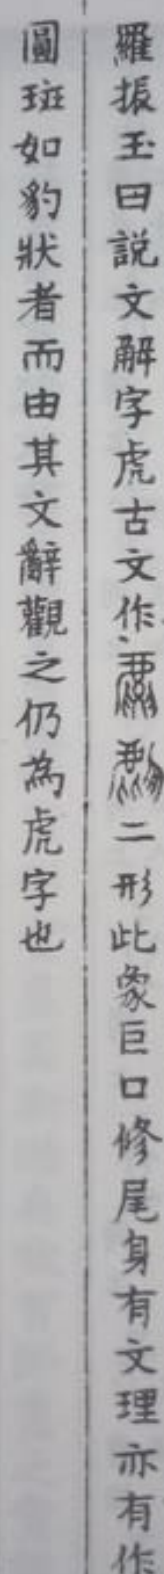 羅振玉曰説文解字虎古文作二形此象巨口修尾身有文理亦有作
圓斑如豹狀者而由其文辭觀之仍為虎字也